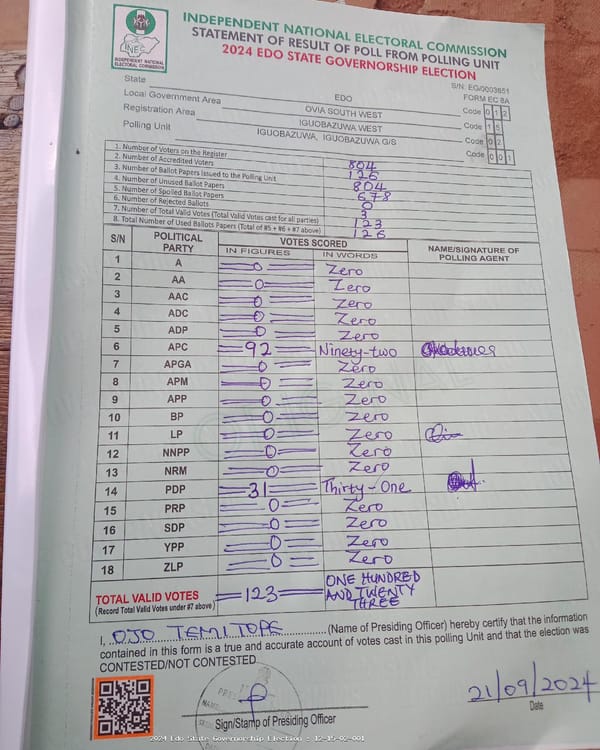 INDEPENDENT NATIONAL ELECTORAL COMMISSION
STATEMENT OF RESULT OF POLL FROM POLLING UNIT
2024 EDO STATE GOVERNORSHIP ELECTION
INEC
INDEPENDENT NATIONAL
ELECTORAL COMMISSION
S/N: EG/0003651
FORM EC 8A
State EDO Code 0 1 2
Local Government Area OVIA SOUTH WEST Code 1 5
Registration Area IGUOBAZUWA WEST Code 0 2
Polling Unit IGUOBAZUWA, IGUOBAZUWA G/S Code 0 0 1
1. Number of Voters on the Register 804
2. Number of Accredited Voters 126
3. Number of Ballot Papers Issued to the Polling Unit 804
4. Number of Unused Ballot Papers 678
5. Number of Spoiled Ballot Papers 0
6. Number of Rejected Ballots 3
7. Number of Total Valid Votes (Total Valid Votes cast for all parties) 123
8. Total Number of Used Ballots Papers (Total of #5 + #6 + #7 above) 126
S/N POLITICAL PARTY VOTES SCORED NAME/SIGNATURE OF POLLING AGENT
IN FIGURES IN WORDS
1 A 0 Zero
2 AA 0 Zero
3 AAC 0 Zero
4 ADC 0 Zero
5 ADP 0 Zero
6 APC 92 Ninety-two
7 APGA 0 Zero
8 APM 0 Zero
9 APP 0 Zero
10 BP 0 Zero
11 LP 0 Zero
12 NNPP 0 Zero
13 NRM 0 Zero
14 PDP 31 Thirty-One
15 PRP 0 Zero
16 SDP 0 Zero
17 YPP 0 Zero
18 ZLP 0 Zero
TOTAL VALID VOTES =123= ONE HUNDRED AND TWENTY THREE
(Record Total Valid Votes under #7 above)
I, OJO TEMITOPE (Name of Presiding Officer) hereby certify that the information
contained in this form is a true and accurate account of votes cast in this polling Unit and that the election was
CONTESTED/NOT CONTESTED
21/09/2024
Sign/Stamp of Presiding Officer
Date
2024 Edo State Governorship Election : 12-15-02-001